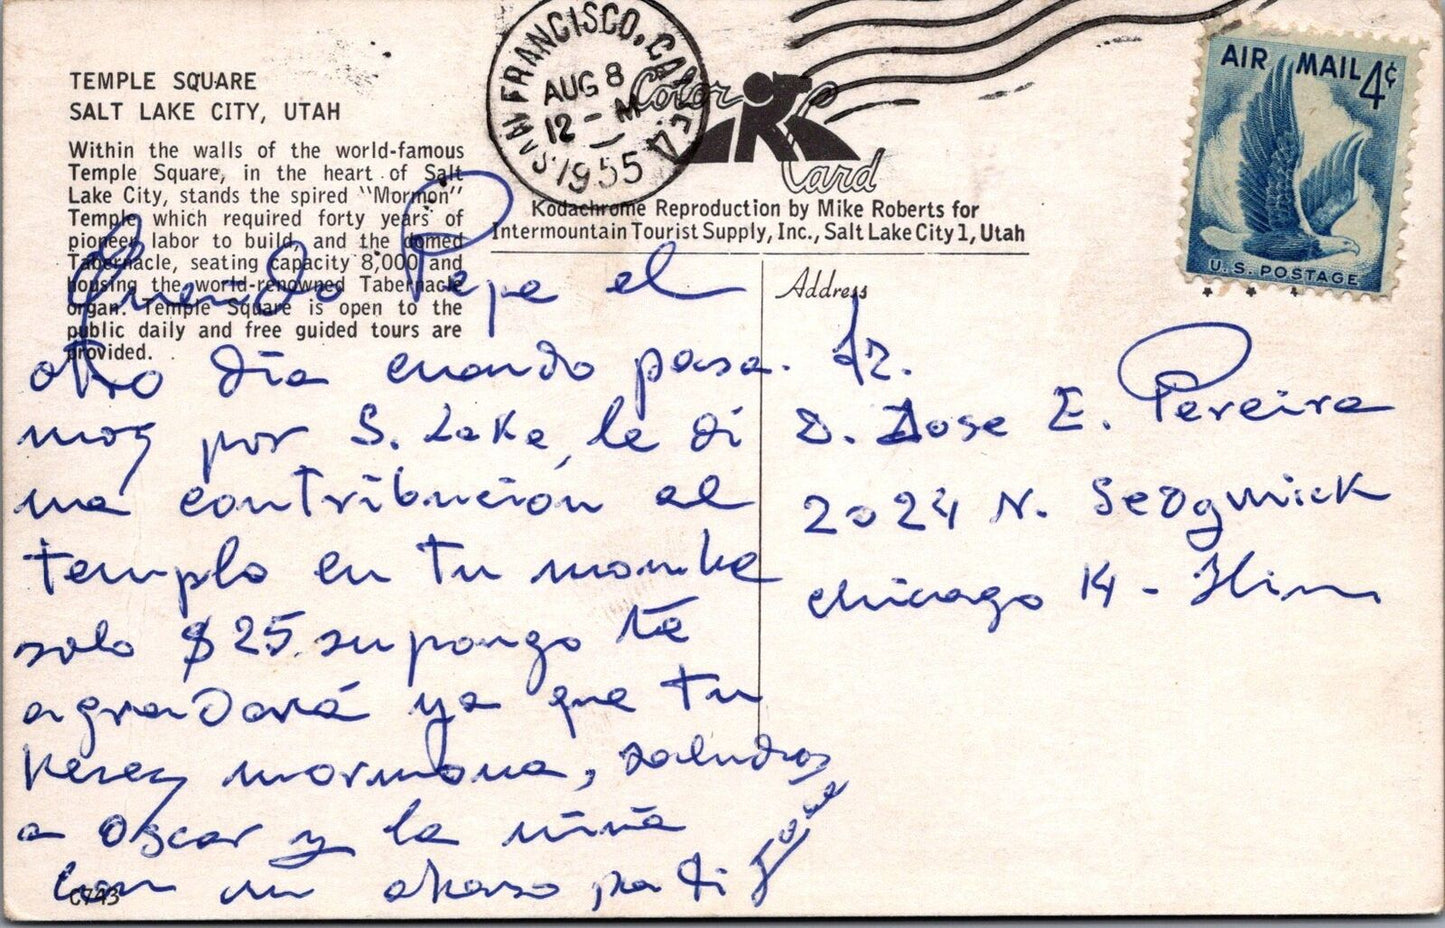 TEMPLE SQUARE
SALT LAKE CITY, UTAH
Within the walls of the world-famous
Temple Square, in the heart of Salt
Lake City, stands the spired "Mormon"
Temple which required forty years of
pioneer labor to build, and the domed
Tabernacle, seating capacity 8,000 and
housing the world-renowned Tabernacle
organ. Temple Square is open to the
public daily and free guided tours are
provided.
SAN FRANCISCO, CALIF.
AUG 8
12 - M
1955
Color Card
Kodachrome Reproduction by Mike Roberts for
Intermountain Tourist Supply, Inc., Salt Lake City 1, Utah
AIR MAIL 4¢
U.S. POSTAGE
Querido Pepe el
otro día cuando pasa-
mos por S. Lake, le di
una contribución al
templo en tu nombre
solo $25. supongo te
agradará ya que tu
mormona, saludos
a Oscar y la niña
con un abraso pa ti
Jose
Address
Sr.
D. Jose E. Pereira
2024 N. Sedgwick
chicago 14 - Ilin
C743